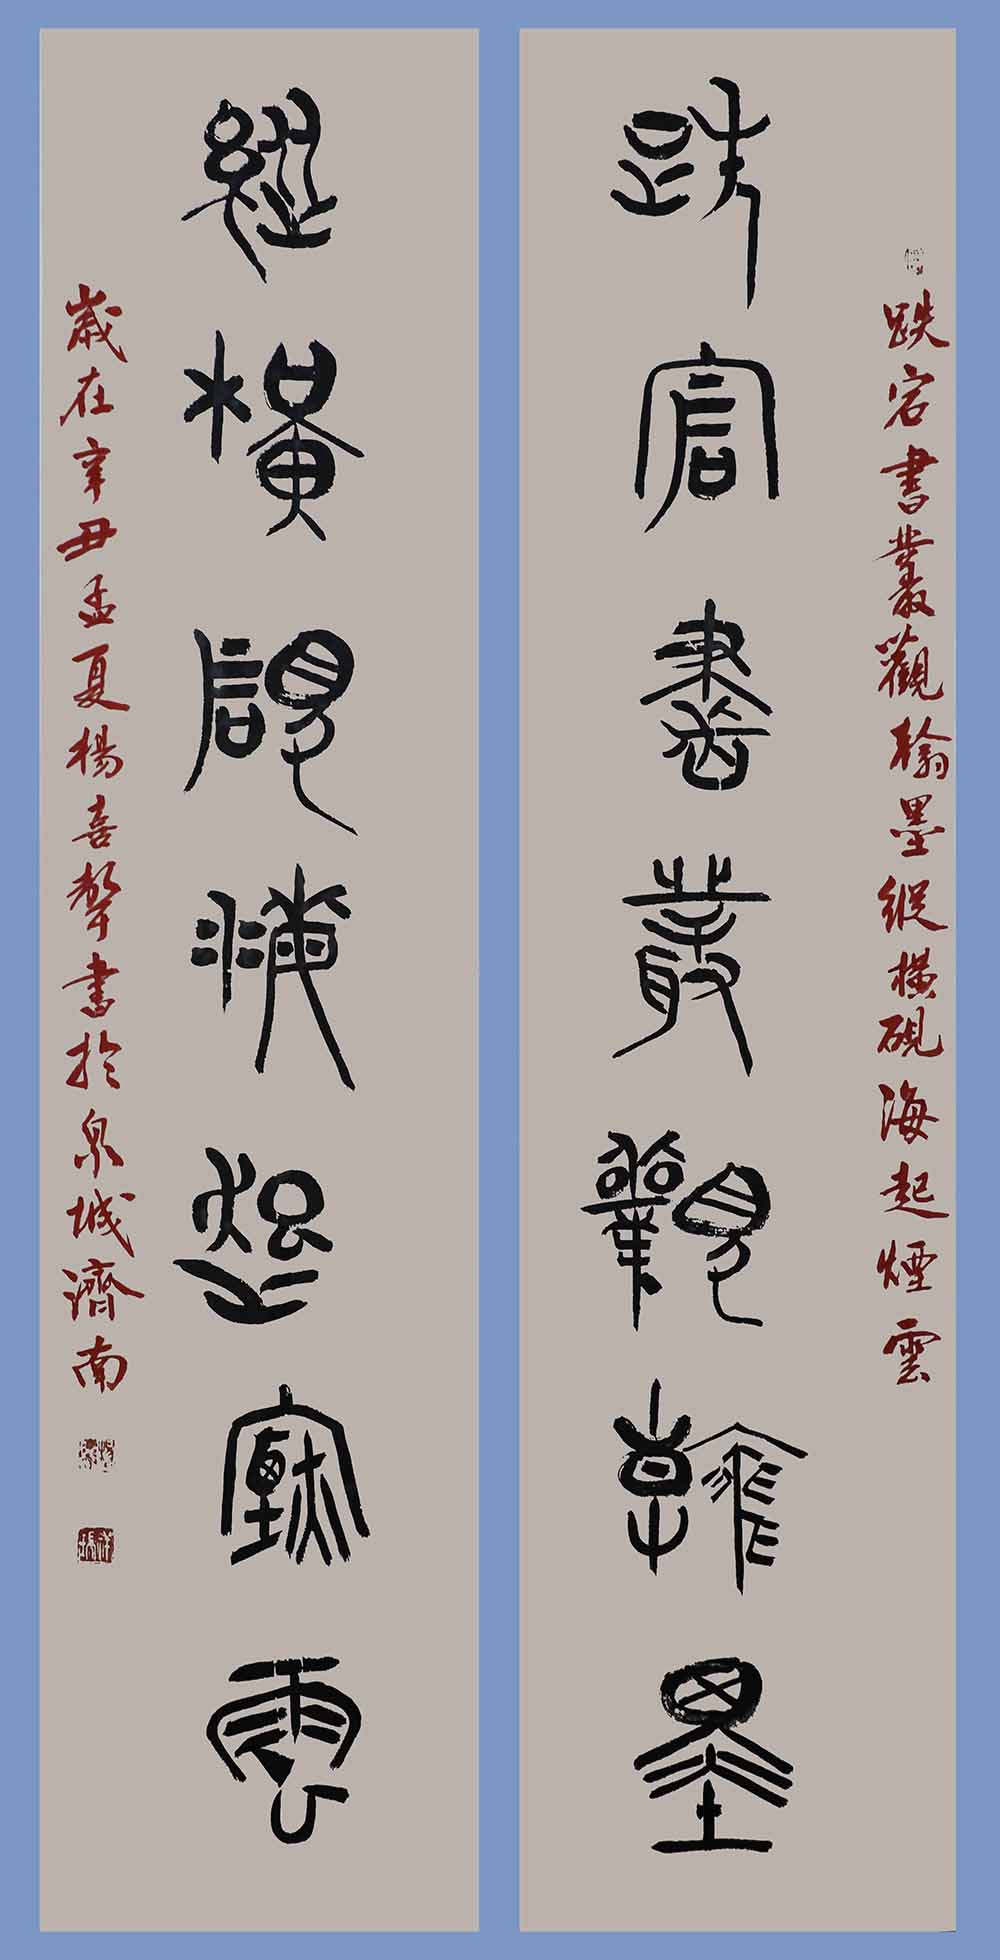 跌宕書叢觀翰墨縱橫硯海起煙雲
跌宕書叢觀翰墨
縱橫硯海起煙雲
歲在辛丑孟夏楊喜聲書於泉城濟南